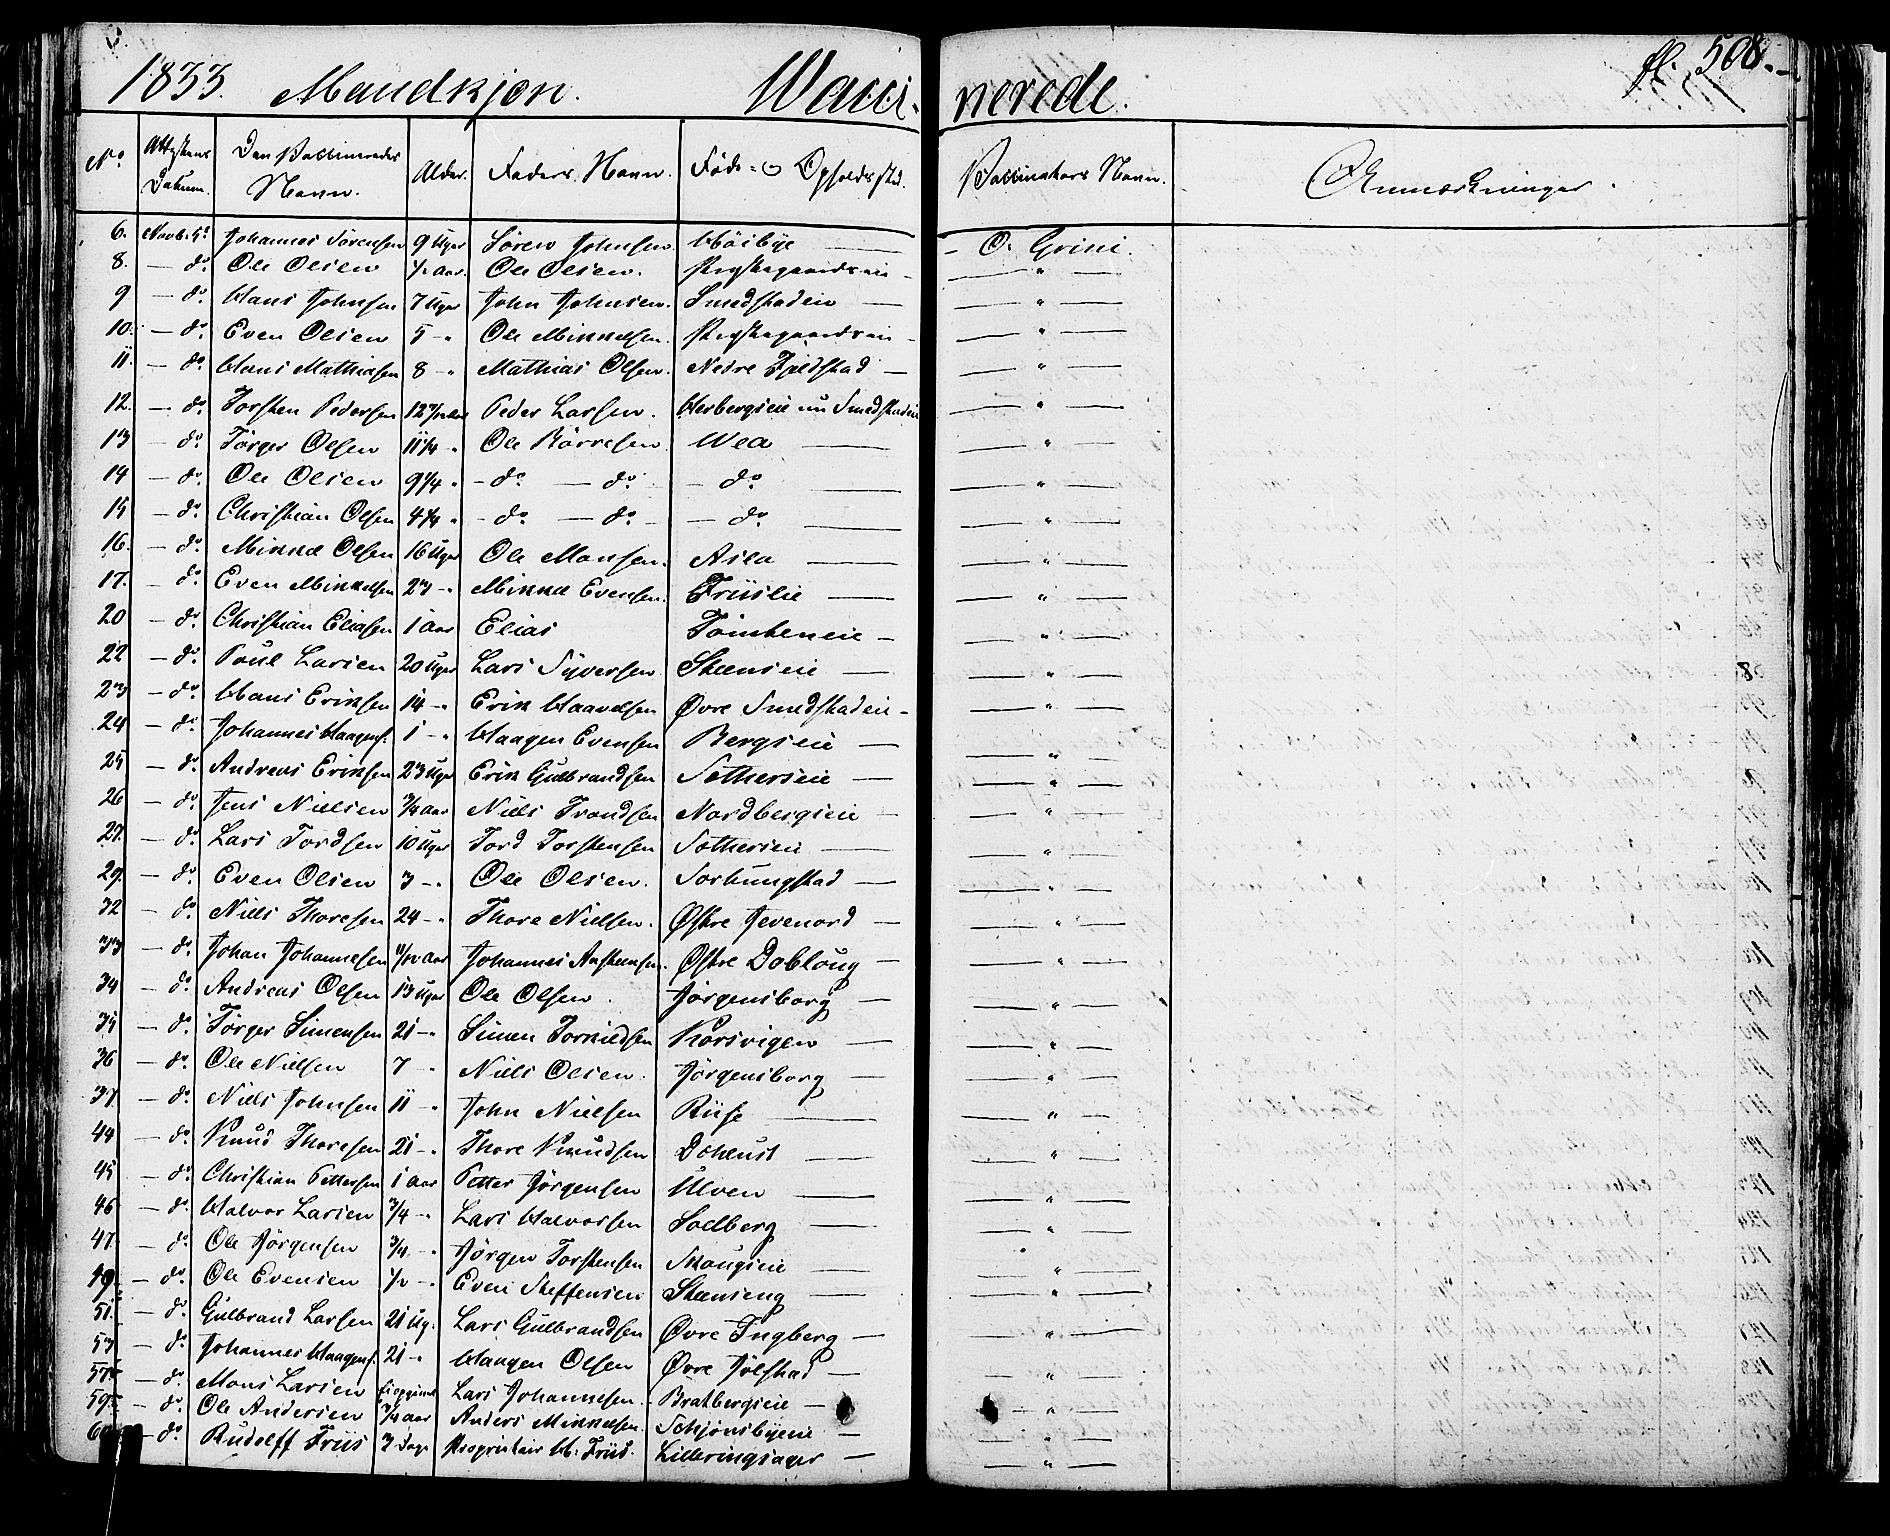 1833. Mandkjön. Wacci- nerede. fl. 508.
No. Attestens Datum. Den Vaccineredes Navn. Alder. Faders Navn. Føde- og Opholdssted. Vaccinators Navn. Anmærkninger.
6. Novb. 5t Johannes Sørensen 9 Uger Sören Johnsen Höibye — O. Grini.
8. — do. Ole Olsen ½ Aar. Ole Olsen. — "
9 — do. Hans Johnsen 7 Uger John Johnsen. Smedstadeie — "
10. — do. Even Olsen 5 - " Ole Minnelsen. — "
11. — do. Hans Mathiesen 8 - " Mathias Olsen. Nedre Fjeldstad — "
12. — do. Torsten Pedersen Peder Larsen. Herbergseie nu Smedstadeie — "
13 — do. Törger Olsen 11¼ - " Ole Börresen Wea — "
14 — do. Ole Olsen 9¼ " - do. — do. - do. — "
15 — do. Christian Olsen 4¼ " - do. — do. - do. — "
16. — do. Minnæ Olsen 16 Uger Ole Monsen. Asla — "
17. — do. Even Minnelsen 23 - " Minnæ Evensen. Friislie — "
20 — do. Christian Eliasen 1 Aar Elias Tömteneie — "
22 — do. Poul Larsen 20 Uger Lars Syversen Skænseie — "
23 — do. Hans Eriksen 14 - " Erik Haavelsen Øvre Smedstadeie - "
24 — do. Johannes Haagens. 1 - " Haagen Evensen Bergseie — "
25 — do. Andreas Eriksen 23 Uger Erik Gulbrandsen Sethereie — "
26 — do. Jens Nielsen ¾ Aar Niels Trondsen Nordbergseie — "
27. — do. Lars Tordsen 10 Uger Tord Torstensen Sethereie — "
29. — do. Even Olsen 3 - " Ole Olsen. Sorkungstad — "
32 — do. Niels Thoresen 24 - " Thore Nielsen. Østre Jevenord — "
33 — do. Johan Johannesen Johannes Anstensen. Østre Dobloug — "
34 — do. Andreas Olsen 13 Uger Ole Olsen. Jörgensborg — "
35 — do. Törger Simensen 21 - " Simen Torkildsen Korsvigen — "
36 — do. Ole Nielsen 7 - " Niels Olsen. Jörgensborg — "
37 — do. Niels Johnsen 11 - " John Nielsen Riise — "
44 — do. Knud Thoresen 21 - " Thore Knudsen — "
45 — do. Christian Pettersen 1 Aar Petter Jörgensen Ulven — "
46 — do. Halvor Larsen ¾ - " Lars Halvorsen Solberg — "
47 — do. Ole Jörgensen ¾ - " Jörgen Torstensen Skougseie — "
49 — do. Ole Evensen ½ - " Even Steffensen Skænseng — "
51. — do. Gulbrand Larsen 21 Ug. Lars Gulbrandsen Øvre Ingberg — "
53 — do. Johannes Haagens. 21 - " Haagen Olsen Øvre Jölstad — "
57 — do. Mons Larsen Lars Johannesen. Bratbergseie — "
59 — do. Ole Andersen ¾ Aar Anders Minnelsen. Schjönsbyeie — "
— do. Rudolff Friis 3 Dage Proprietair H. Friis. Lilleringsager — "